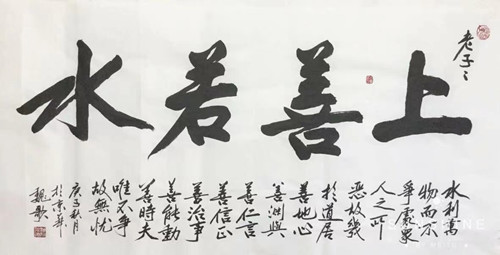 老子:
上善若水
水利萬
物而不
爭處衆
人之所
惡故幾
於道居
善地心
善渊與
善仁言
善信正
善治事
善能動
善時夫
唯不爭
故無忧
庚子秋月
於京華
魏歌